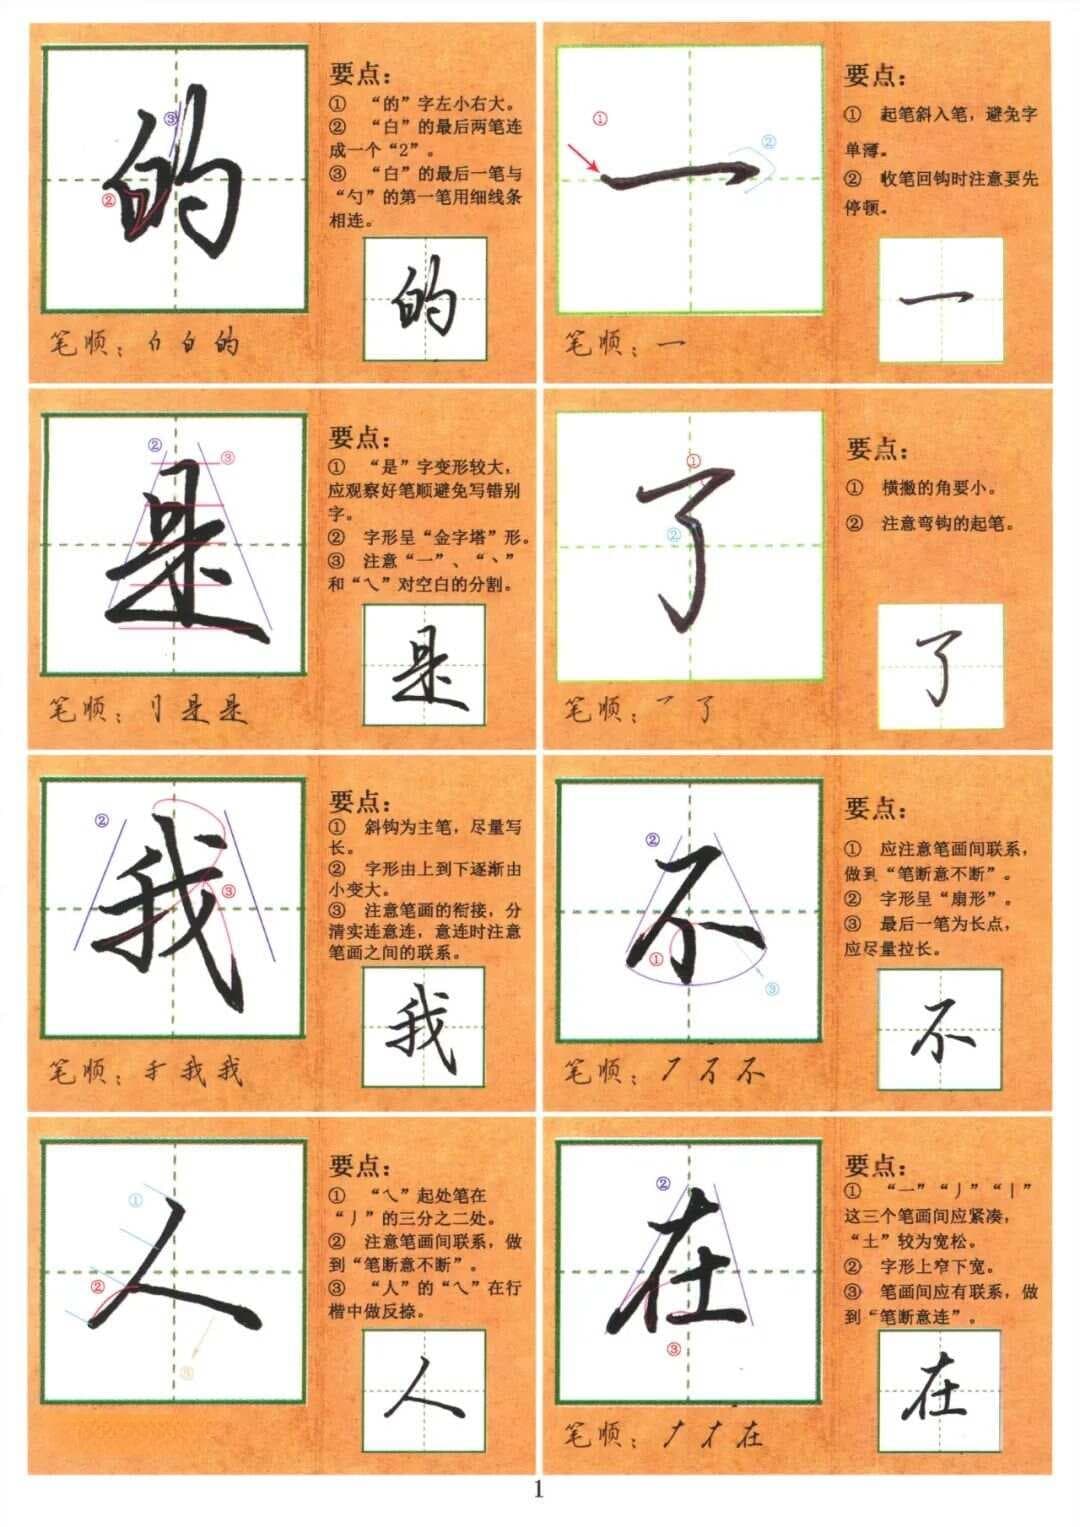 的
③
②
要点：
① “的”字左小右大。
② “白”的最后两笔连
成一个“2”。
③ “白”的最后一笔与
“勺”的第一笔用细线条
相连。
的
笔顺：白 的
一
①
②
要点：
① 起笔斜入笔，避免字
单薄。
② 收笔回钩时注意要先
停顿。
一
笔顺：一
是
②
③
要点：
① “是”字变形较大，
应观察好笔顺避免写错别
字。
② 字形呈“金字塔”形。
③ 注意“一”、“丶”
和“乀”对空白的分割。
是
笔顺：刂 是 是
了
①
②
要点：
① 横撇的角要小。
② 注意弯钩的起笔。
了
笔顺：乛 了
我
②
③
要点：
① 斜钩为主笔，尽量写
长。
② 字形由上到下逐渐由
小变大。
③ 注意笔画的衔接，分
清实连意连，意连时注意
笔画之间的联系。
我
笔顺：手 我 我
不
②
①
③
要点：
① 应注意笔画间联系，
做到“笔断意不断”。
② 字形呈“扇形”。
③ 最后一笔为长点，
应尽量拉长。
不
笔顺：丆 不 不
人
①
②
③
要点：
① “乀”起处笔在
“丿”的三分之二处。
② 注意笔画间联系，做
到“笔断意不断”。
③ “人”的“乀”在行
楷中做反捺。
人
在
②
③
要点：
① “一”“丿”“丨”
这三个笔画间应紧凑，
“土”较为宽松。
② 字形上窄下宽。
③ 笔画间应有联系，做
到“笔断意连”。
在
笔顺：ナ 才 在
1